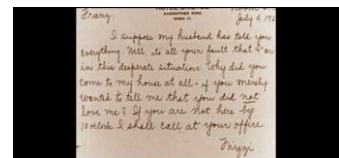 KAERNTHNER RING
WIEN IV.
July 6, 192
Franz.
I suppose my husband has told you
everything. Well, its all your fault that I'm
in this desperate situation. Why did you
come to my house at all - if you merely
wanted to tell me that you did not
love me? If you are not here by
10 o'clock I shall call at your office
Mizzi